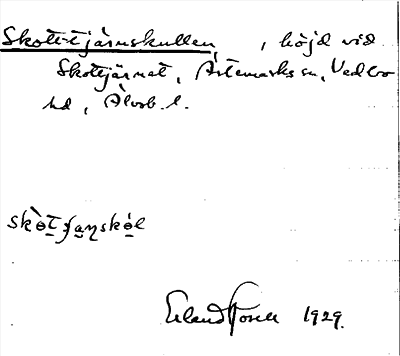 Skottjärnskullen, höjd vid
Skottjärnet, Ärtemarks sn, Vedbo
hd, Älvsb. l.
Erland Rosell 1929.